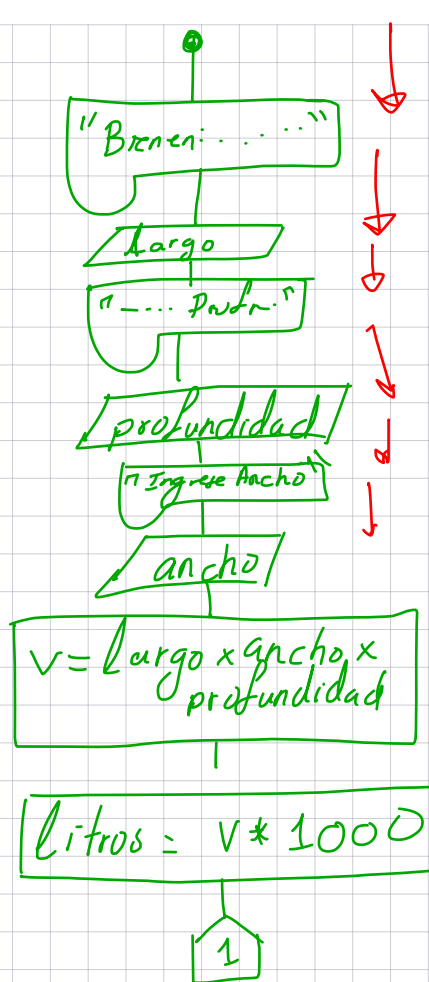 "Bienen: . . . . . ."
Largo
"----... Profn.."
profundidad
"Ingrese Ancho"
ancho
V = largo x ancho x
profundidad
litros = V * 1000
1